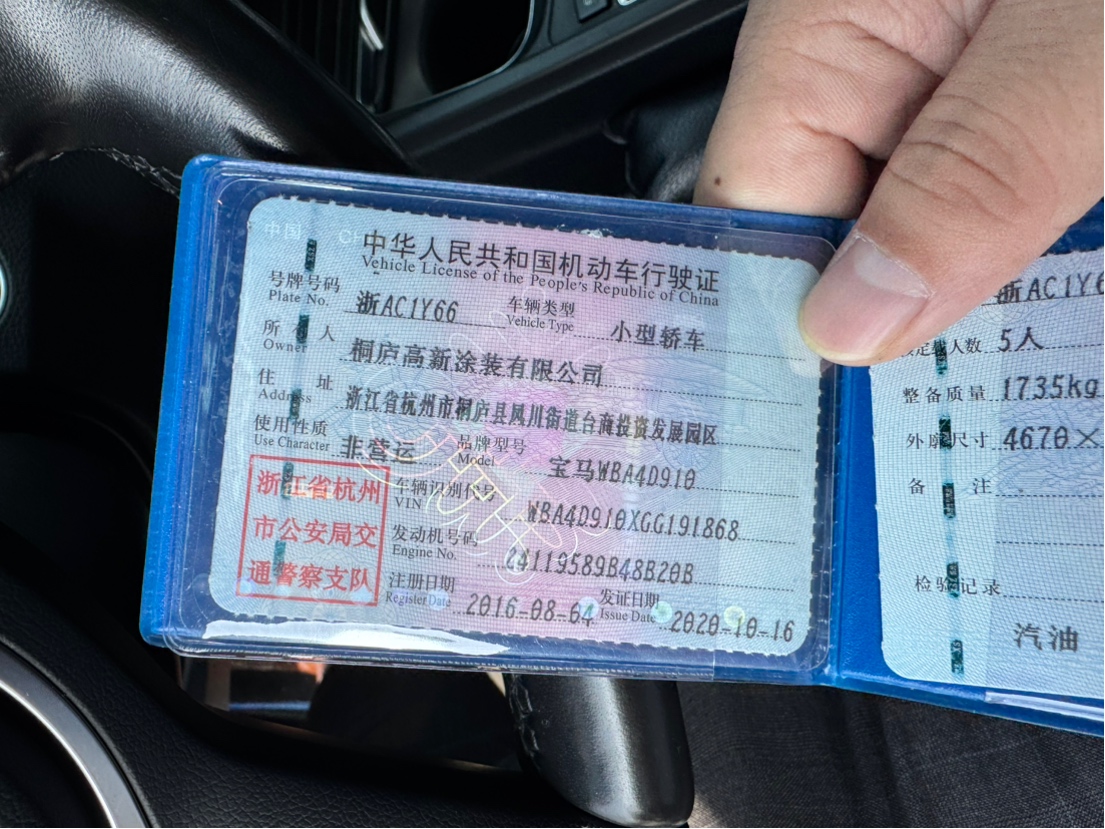 中国 CH
中华人民共和国机动车行驶证
Vehicle License of the People's Republic of China
号牌号码 浙AC1Y66 车辆类型 小型轿车
Plate No. Vehicle Type
所有人 桐庐高新涂装有限公司
Owner
住址 浙江省杭州市桐庐县凤川街道台商投资发展园区
Address
使用性质 非营运 品牌型号 宝马WBA4D910
Use Character Model
浙江省杭州
市公安局交
通警察支队
车辆识别代号 WBA4D910XGG191868
VIN
发动机号码 44119589B48B20B
Engine No.
注册日期 2016-08-04 发证日期 2020-10-16
Register Date Issue Date
浙AC1Y6
定载人数 5人
整备质量 1735kg
外廓尺寸 4670×
备注
检验记录
汽油